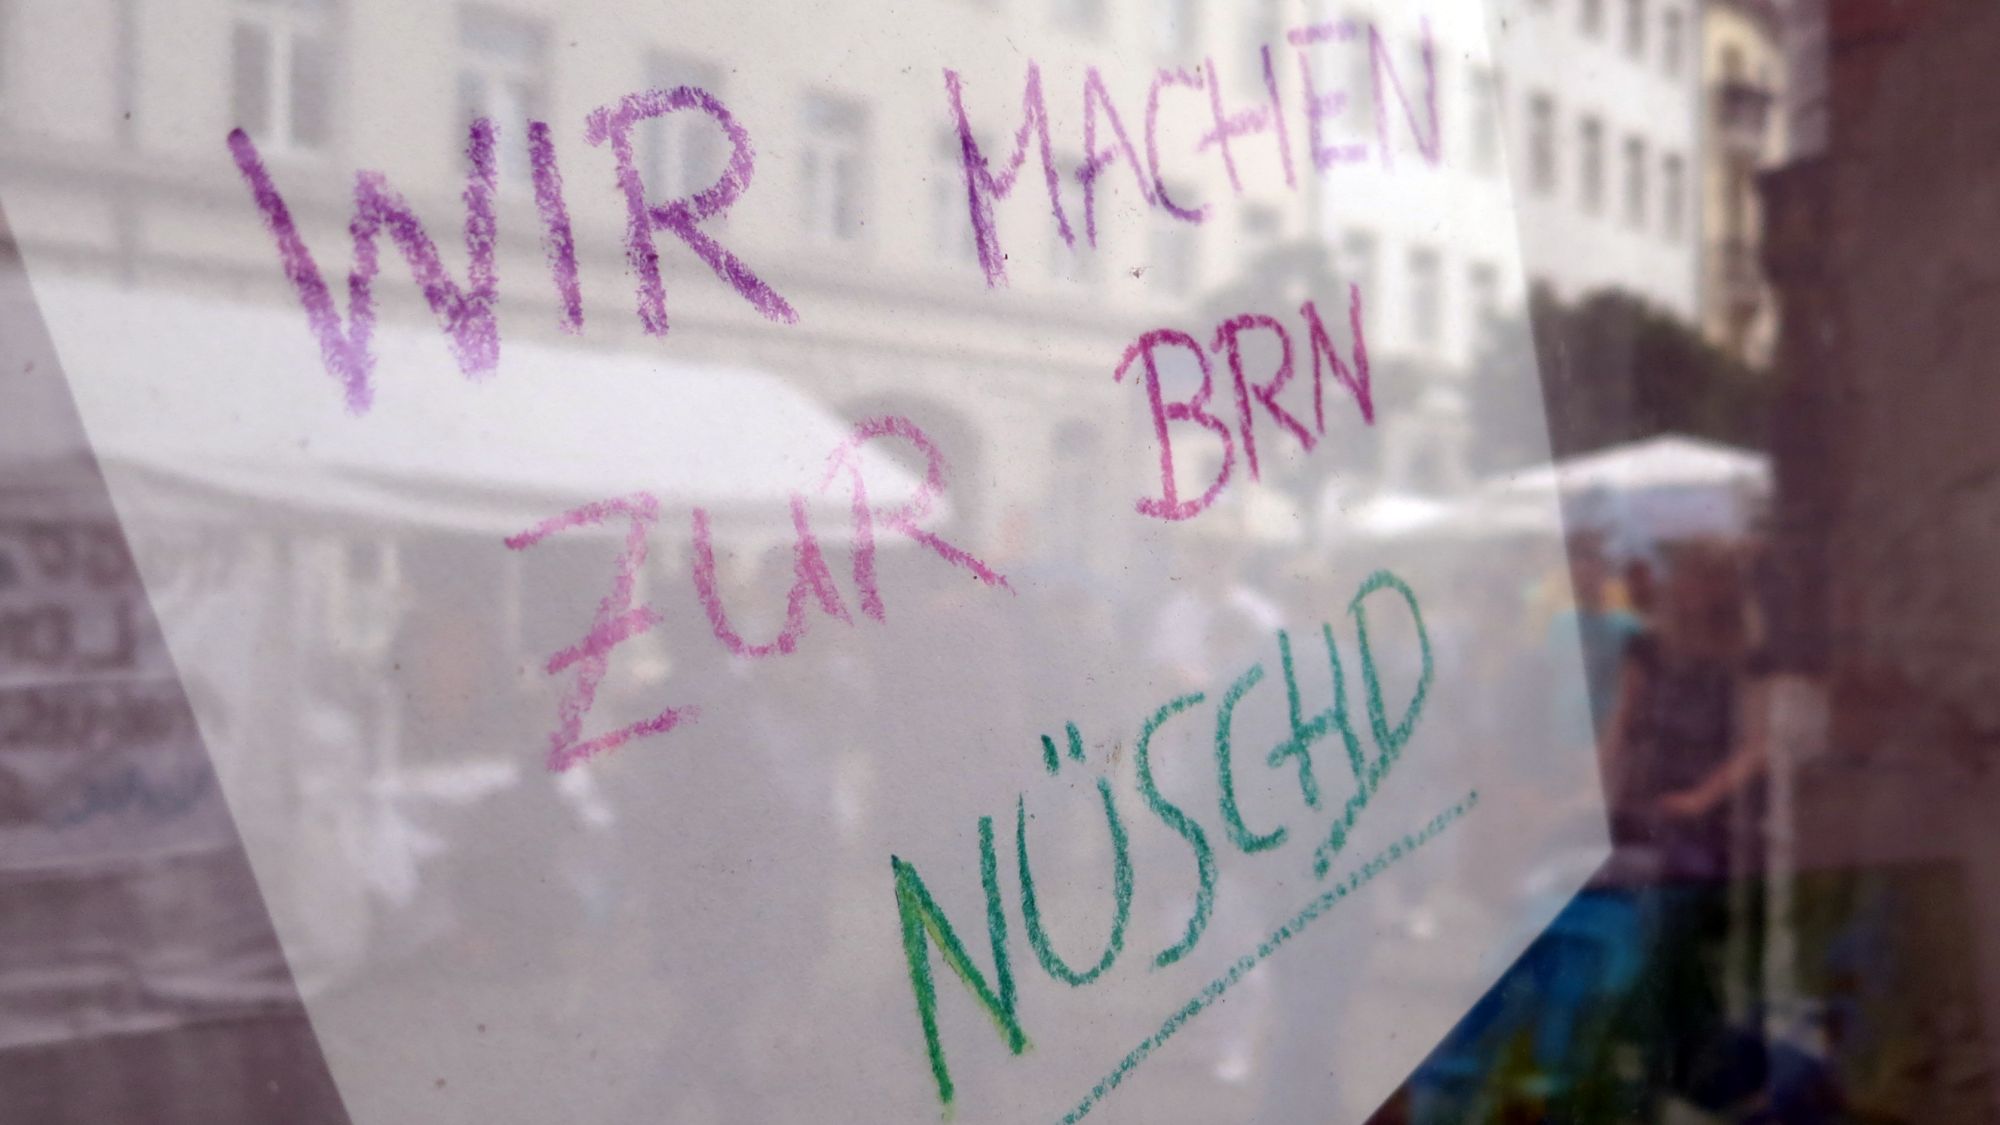 WIR MACHEN
ZUR BRN
NÜSCHD